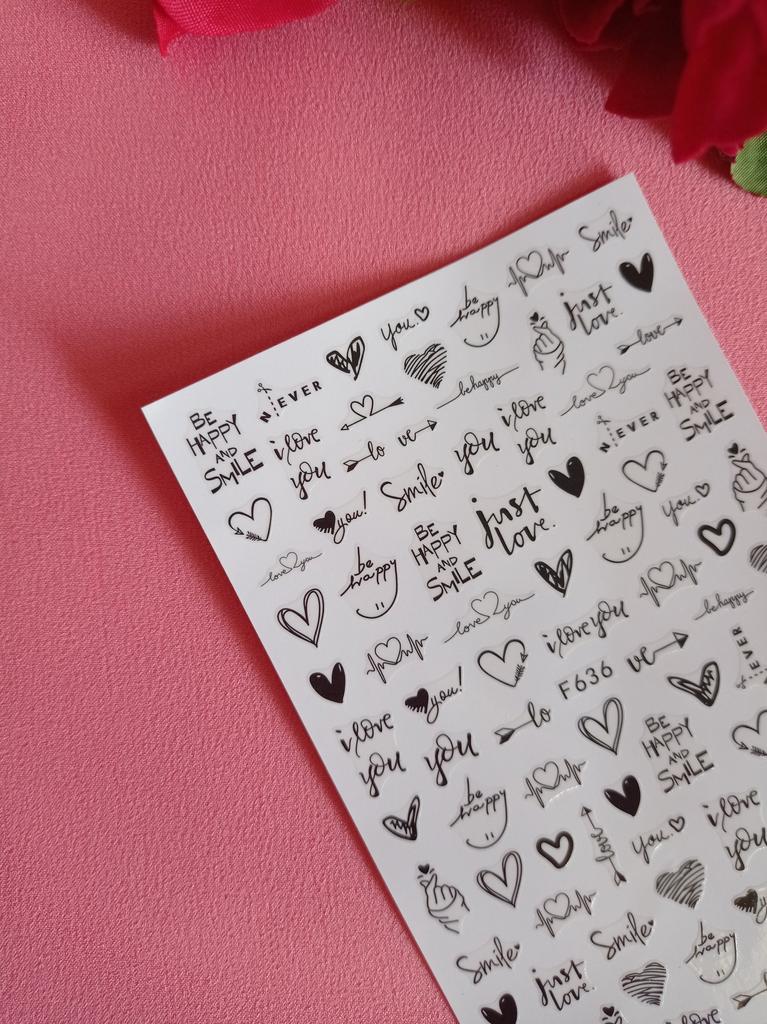 Smile
be
happy
you.
just
love.
love
NEVER
behappy
love you
BE
HAPPY
AND
SMILE
BE
HAPPY
AND
SMILE
i love
you
lo ve
you
i love
you
NEVER
you!
Smile
just
love.
be
happy
you.
love you
be
happy
BE
HAPPY
AND
SMILE
love you
i love you
behappy
you!
F636
lo ve
NEVER
i love
you
you
be
happy
BE
HAPPY
AND
SMILE
love
you.
i love
you
Smile
Smile
be
happy
just
love.
i love